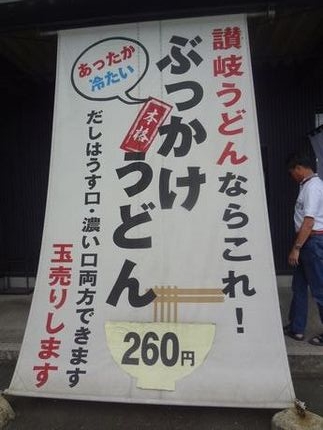 讃岐うどんならこれ!
あったか
冷たい
ぶっかけ
本格
うどん
だしはうす口・濃い口両方できます
玉売りします
260円